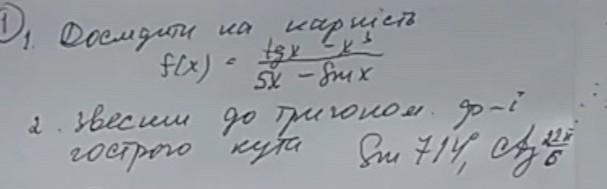 ① 1. Дослідити на парність
f(x) = (tgx - x³)/(5x - Sinx)
2. Звести до тригоном. ф-ї
гострого кута Sin 714°, ctg